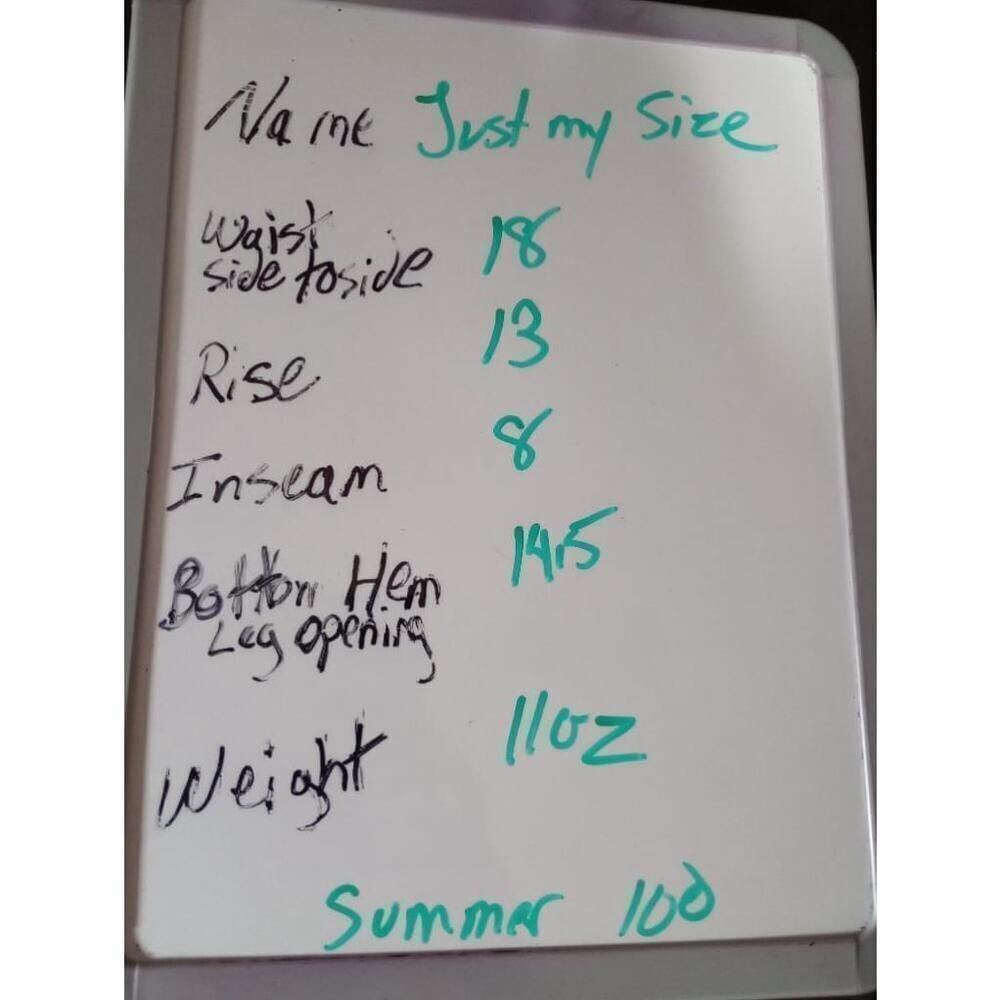 Name Just my Size
Waist
side to side 18
Rise 13
Inseam 8
Bottom Hem 14.5
Leg opening
Weight 11oz
Summer 100